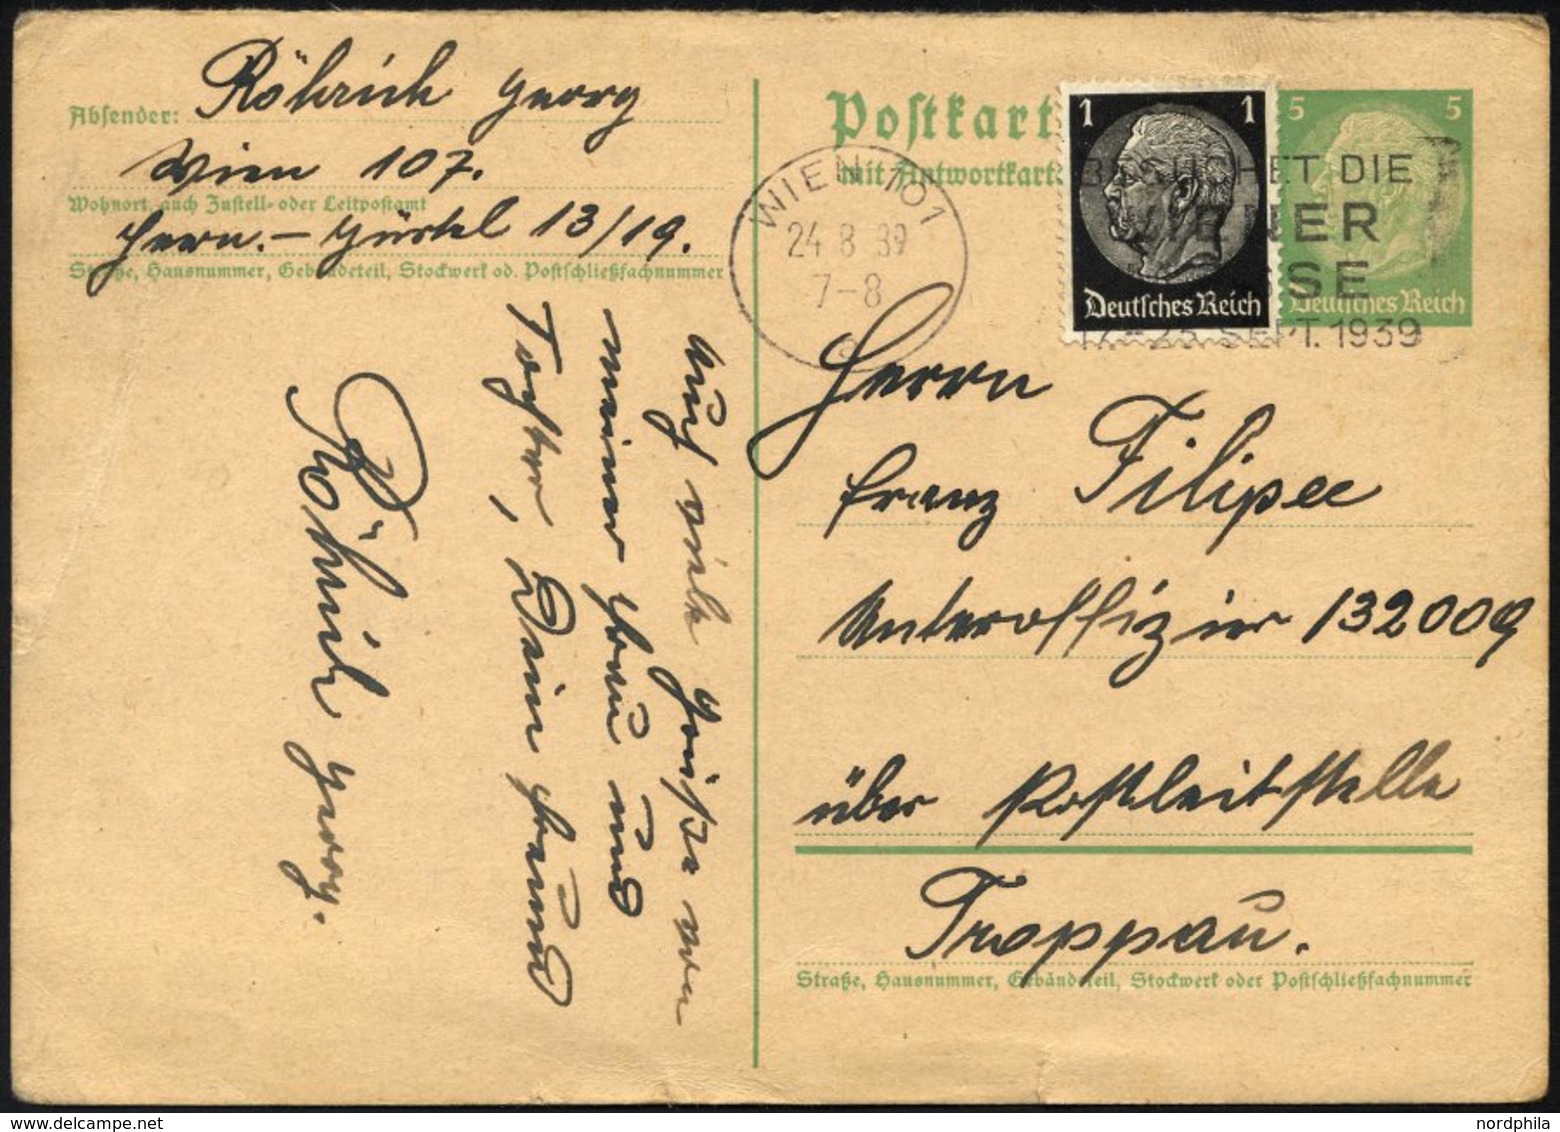 Röhrich Georg
Absender:
Wien 107.
Wohnort, auch Zustell- oder Leitpostamt
Hern.-Gürtel 13/19.
Straße, Hausnummer, Gebäudeteil, Stockwerk od. Postschließfachnummer
Auch viele Grüße von
meiner Frau und
Tochter, Dein Freund
Röhrich Georg.
Postkart
mit Antwortkart
WIEN 101
24.8.39
7-8
BESUCHET DIE
WIENER
MESSE
17.-23. SEPT. 1939
1 1
Deutsches Reich
5 5
Deutsches Reich
Herrn
Franz Filipec
Unteroffizier 132009
über Postleitstelle
Troppau.
Straße, Hausnummer, Gebäudeteil, Stockwerk oder Postschließfachnummer
nordphila